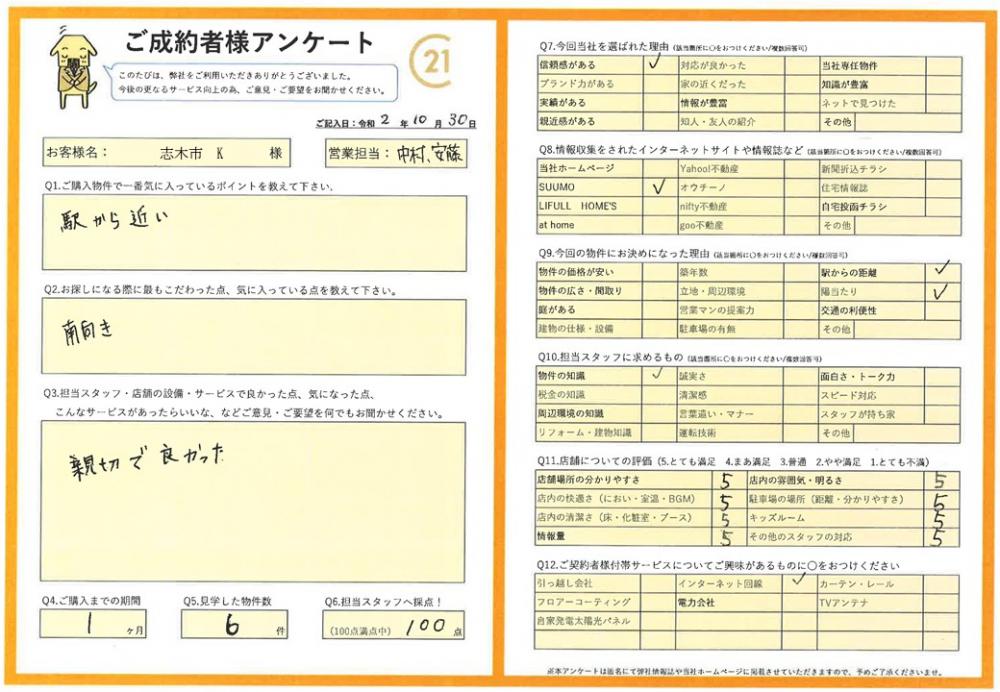 ご成約者様アンケート
21
このたびは、弊社をご利用いただきありがとうございました。
今後の更なるサービス向上の為、ご意見・ご要望をお聞かせください。
ご記入日：令和 2 年 10 月 30 日
お客様名： 志木市 K 様
営業担当： 中村、安藤
Q1.ご購入物件で一番気に入っているポイントを教えて下さい。
駅から近い
Q2.お探しになる際に最もこだわった点、気に入っている点を教えて下さい。
南向き
Q3.担当スタッフ・店舗の設備・サービスで良かった点、気になった点、
こんなサービスがあったらいいな、などご意見・ご要望を何でもお聞かせください。
親切で良かった
Q4.ご購入までの期間
1 ヶ月
Q5.見学した物件数
6 件
Q6.担当スタッフへ採点！
(100点満点中) 100 点
Q7.今回当社を選ばれた理由 (該当箇所に〇をおつけください/複数回答可)
信頼感がある ✓ 対応が良かった 当社専任物件
ブランド力がある 家の近くだった 知識が豊富
実績がある 情報が豊富 ネットで見つけた
親近感がある 知人・友人の紹介 その他
Q8.情報収集をされたインターネットサイトや情報誌など (該当箇所に〇をおつけください/複数回答可)
当社ホームページ Yahoo!不動産 新聞折込チラシ
SUUMO ✓ オウチーノ 住宅情報誌
LIFULL HOME'S nifty不動産 自宅投函チラシ
at home goo不動産 その他
Q9.今回の物件にお決めになった理由 (該当箇所に〇をおつけください/複数回答可)
物件の価格が安い 築年数 駅からの距離 ✓
物件の広さ・間取り 立地・周辺環境 陽当たり ✓
庭がある 営業マンの提案力 交通の利便性
建物の仕様・設備 駐車場の有無 その他
Q10.担当スタッフに求めるもの (該当箇所に〇をおつけください/複数回答可)
物件の知識 ✓ 誠実さ 面白さ・トーク力
税金の知識 清潔感 スピード対応
周辺環境の知識 言葉遣い・マナー スタッフが持ち家
リフォーム・建物知識 運転技術 その他
Q11.店舗についての評価 (5.とても満足 4.まあ満足 3.普通 2.やや満足 1.とても不満)
店舗場所の分かりやすさ 5 店内の雰囲気・明るさ 5
店内の快適さ（におい・室温・BGM） 5 駐車場の場所（距離・分かりやすさ） 5
店内の清潔さ（床・化粧室・ブース） 5 キッズルーム 5
情報量 5 その他のスタッフの対応 5
Q12.ご契約者様付帯サービスについてご興味があるものに〇をおつけください
引っ越し会社 インターネット回線 ✓ カーテン・レール
フロアーコーティング 電力会社 TVアンテナ
自家発電太陽光パネル
※本アンケートは匿名にて弊社情報誌や当社ホームページに掲載させていただきますので、予めご了承くださいませ。